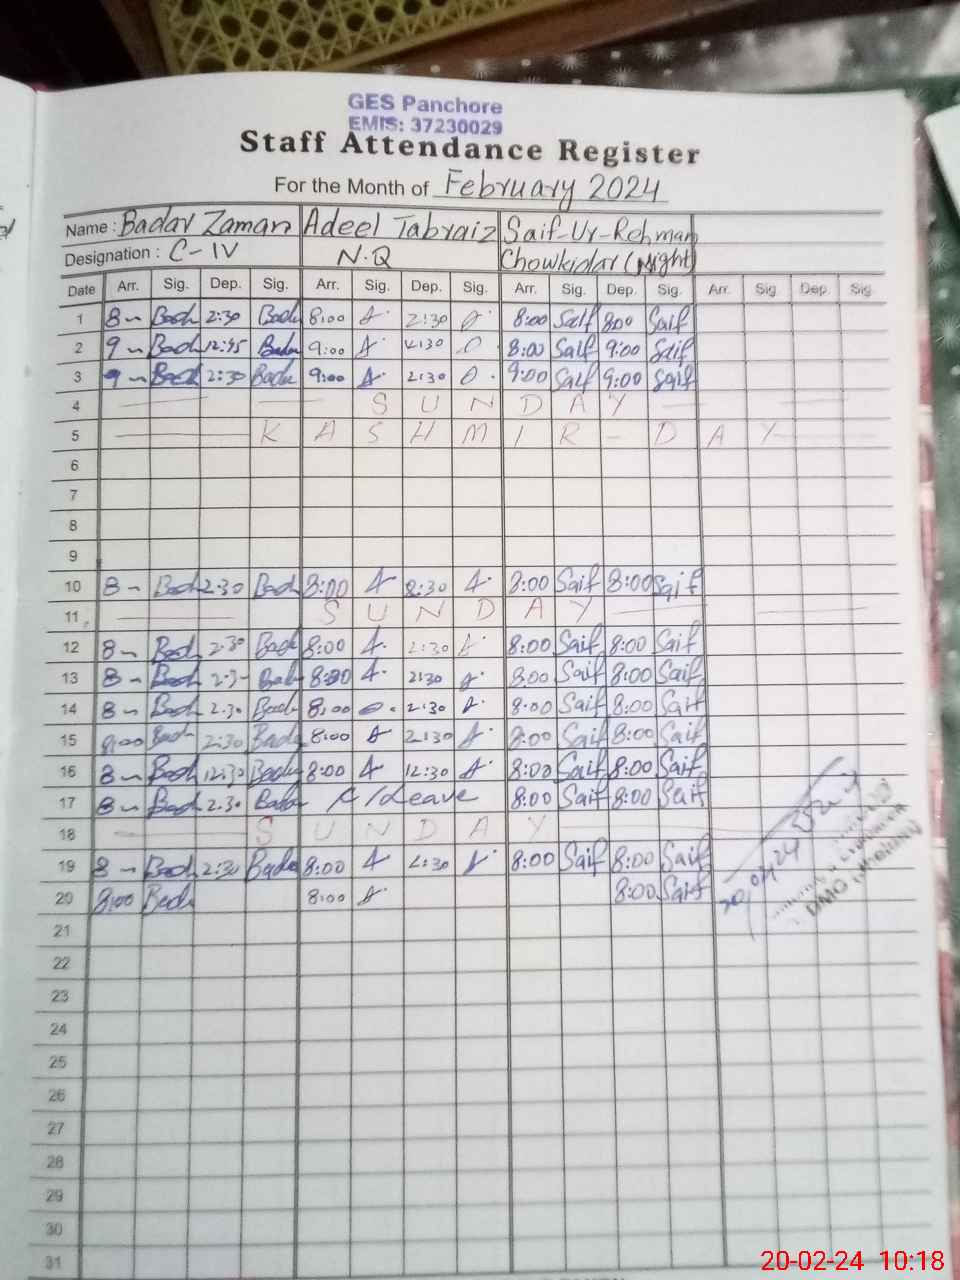 GES Panchore
EMIS: 37230029
Staff Attendance Register
For the Month of February 2024
Name : Badar Zaman Adeel Tabraiz Saif-Ur-Rehman
Designation : C-IV N.Q Chowkidar (Night)
Date Arr. Sig. Dep. Sig. Arr. Sig. Dep. Sig. Arr. Sig. Dep. Sig. Arr. Sig. Dep. Sig.
1 8 - Badr 2:30 Badr 8:00 A. 2:30 8:00 Saif 8:00 Saif
2 9 - Badr 12:45 Badar 9:00 A. 8:00 Saif 9:00 Saif
3 9 - Badr 2:30 Badr 9:00 A. 2:30 9:00 Saif 9:00 Saif
4 SUNDAY
5 KASHMIR-DAY
6
7
8
9
10 8 - Badr 2:30 Badr 8:00 A 2:30 A. 8:00 Saif 8:00 Saif
11 SUNDAY
12 8 - Badr 2:30 Badr 8:00 A. 2:30 A. 8:00 Saif 8:00 Saif
13 8 - Badr 2:3- Badr 8:00 A. 2:30 8:00 Saif 8:00 Saif
14 8 - Badr 2:30 Badr 8:00 2:30 A. 8:00 Saif 8:00 Saif
15 8:00 Badr 2:30 Badr 8:00 A 2:30 A. 8:00 Saif 8:00 Saif
16 8 - Badr 12:30 Badr 8:00 A 12:30 A. 8:00 Saif 8:00 Saif
17 8 - Badr 2:30 Badar C/Leave 8:00 Saif 8:00 Saif
18 SUNDAY
19 8 - Badr 2:30 Badar 8:00 A 2:30 A. 8:00 Saif 8:00 Saif
20 8:00 Badr 8:00 A. 8:00 Saif
20,02,24
DMO
21
22
23
24
25
26
27
28
29
30
31
20-02-24 10:18